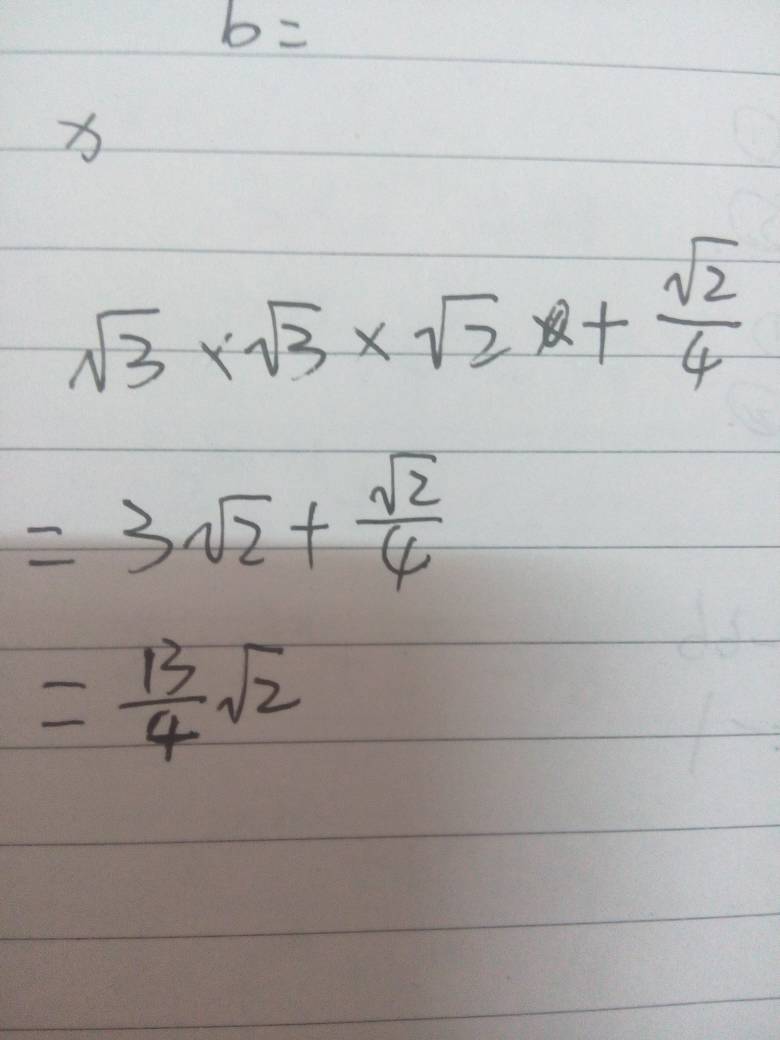 b =
√3 × √3 × √2 + √2/4
= 3√2 + √2/4
= 13/4 √2